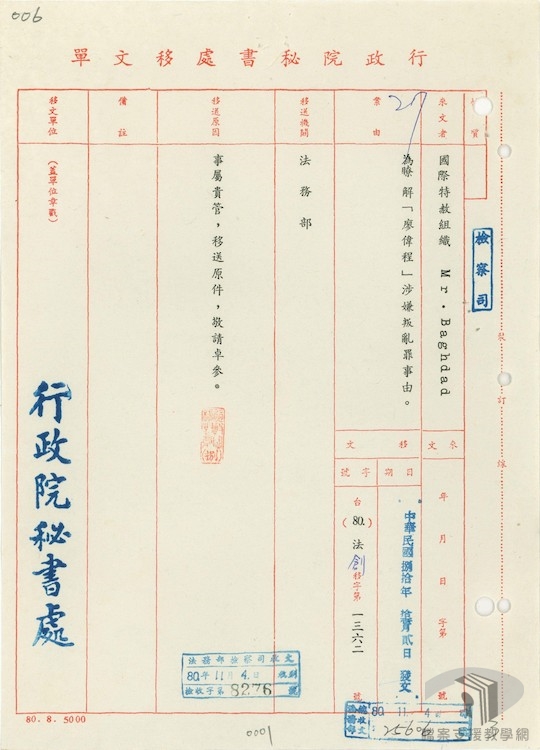 006
行政院秘書處移文單
檢察司
來文者
國際特赦組織 Mr·Baghdad
來文
年 月 日 字第 號
案由
為瞭解「廖偉程」涉嫌叛亂罪事由。
移文
日期
字號
中華民國捌拾年 發文
台(80.)法創移字第一三六二號
移送機關
法務部
移送原因
事屬貴管，移送原件，敬請卓參。
備註
移文單位
(蓋單位章戳)
行政院秘書處
裝訂線
法務部檢察司收文
80年11月4.日
檢收字第8276號
80. 11. 4.
25606
80.8.5000
0001
檔案支援教學網